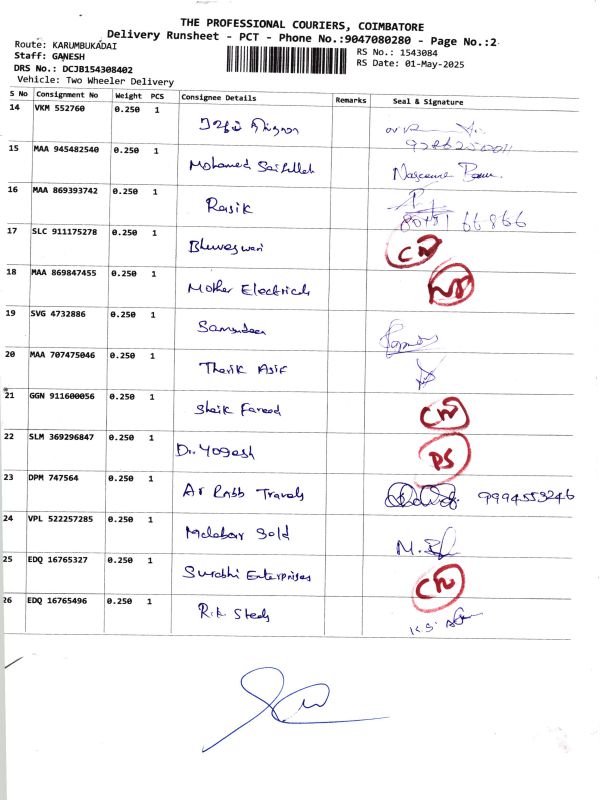 THE PROFESSIONAL COURIERS, COIMBATORE
Delivery Runsheet - PCT - Phone No.:9047080280 - Page No.:2
Route: KARUMBUKADAI
RS No.: 1543084
Staff: GANESH
RS Date: 01-May-2025
DRS No.: DCJB154308402
Vehicle: Two Wheeler Delivery
S No Consignment No Weight PCS Consignee Details Remarks Seal & Signature
14 VKM 552760 0.250 1
15 MAA 945482540 0.250 1 Mohamed Saifullah
16 MAA 869393742 0.250 1 Rasik
17 SLC 911175278 0.250 1 Bhuvaneswari CN
18 MAA 869847455 0.250 1 Mother Electricals
19 SVG 4732886 0.250 1 Samsudeen
20 MAA 707475046 0.250 1 Tharik Asif
21 GGN 911600056 0.250 1 Shaik Fareed CN
22 SLM 369296847 0.250 1 Dr. Yogesh PS
23 DPM 747564 0.250 1 Ar Rabb Travels 9994553246
24 VPL 522257285 0.250 1 Malabar Gold
25 EDQ 16765327 0.250 1 Surabhi Enterprises CN
26 EDQ 16765496 0.250 1 R.K Steels